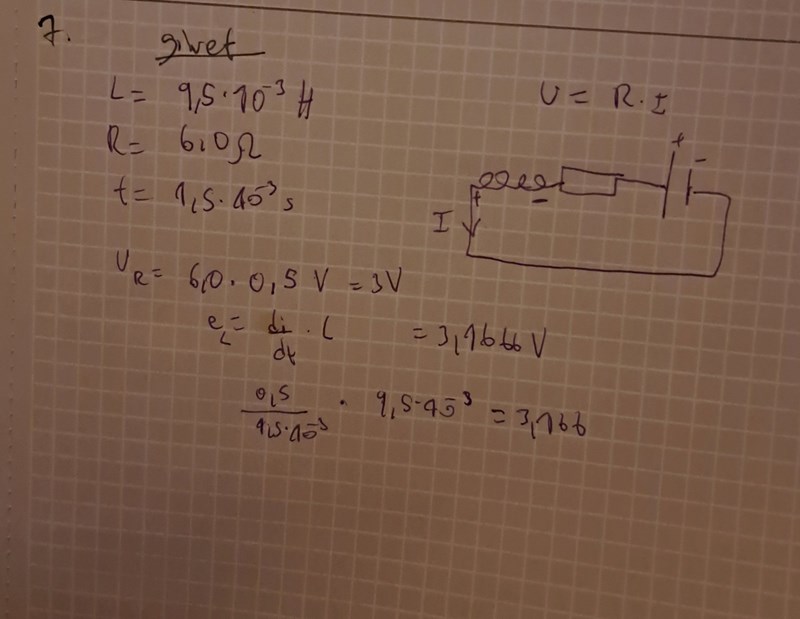 7. givet
L = 9,5·10⁻³ H
U = R·I
R = 6,0Ω
t = 1,5·10⁻³ s
+ -
+ -
I
U_R = 6,0·0,5 V = 3V
e_L = di/dt · L = 3,1666 V
0,5/1,5·10⁻³ · 9,5·10⁻³ = 3,166